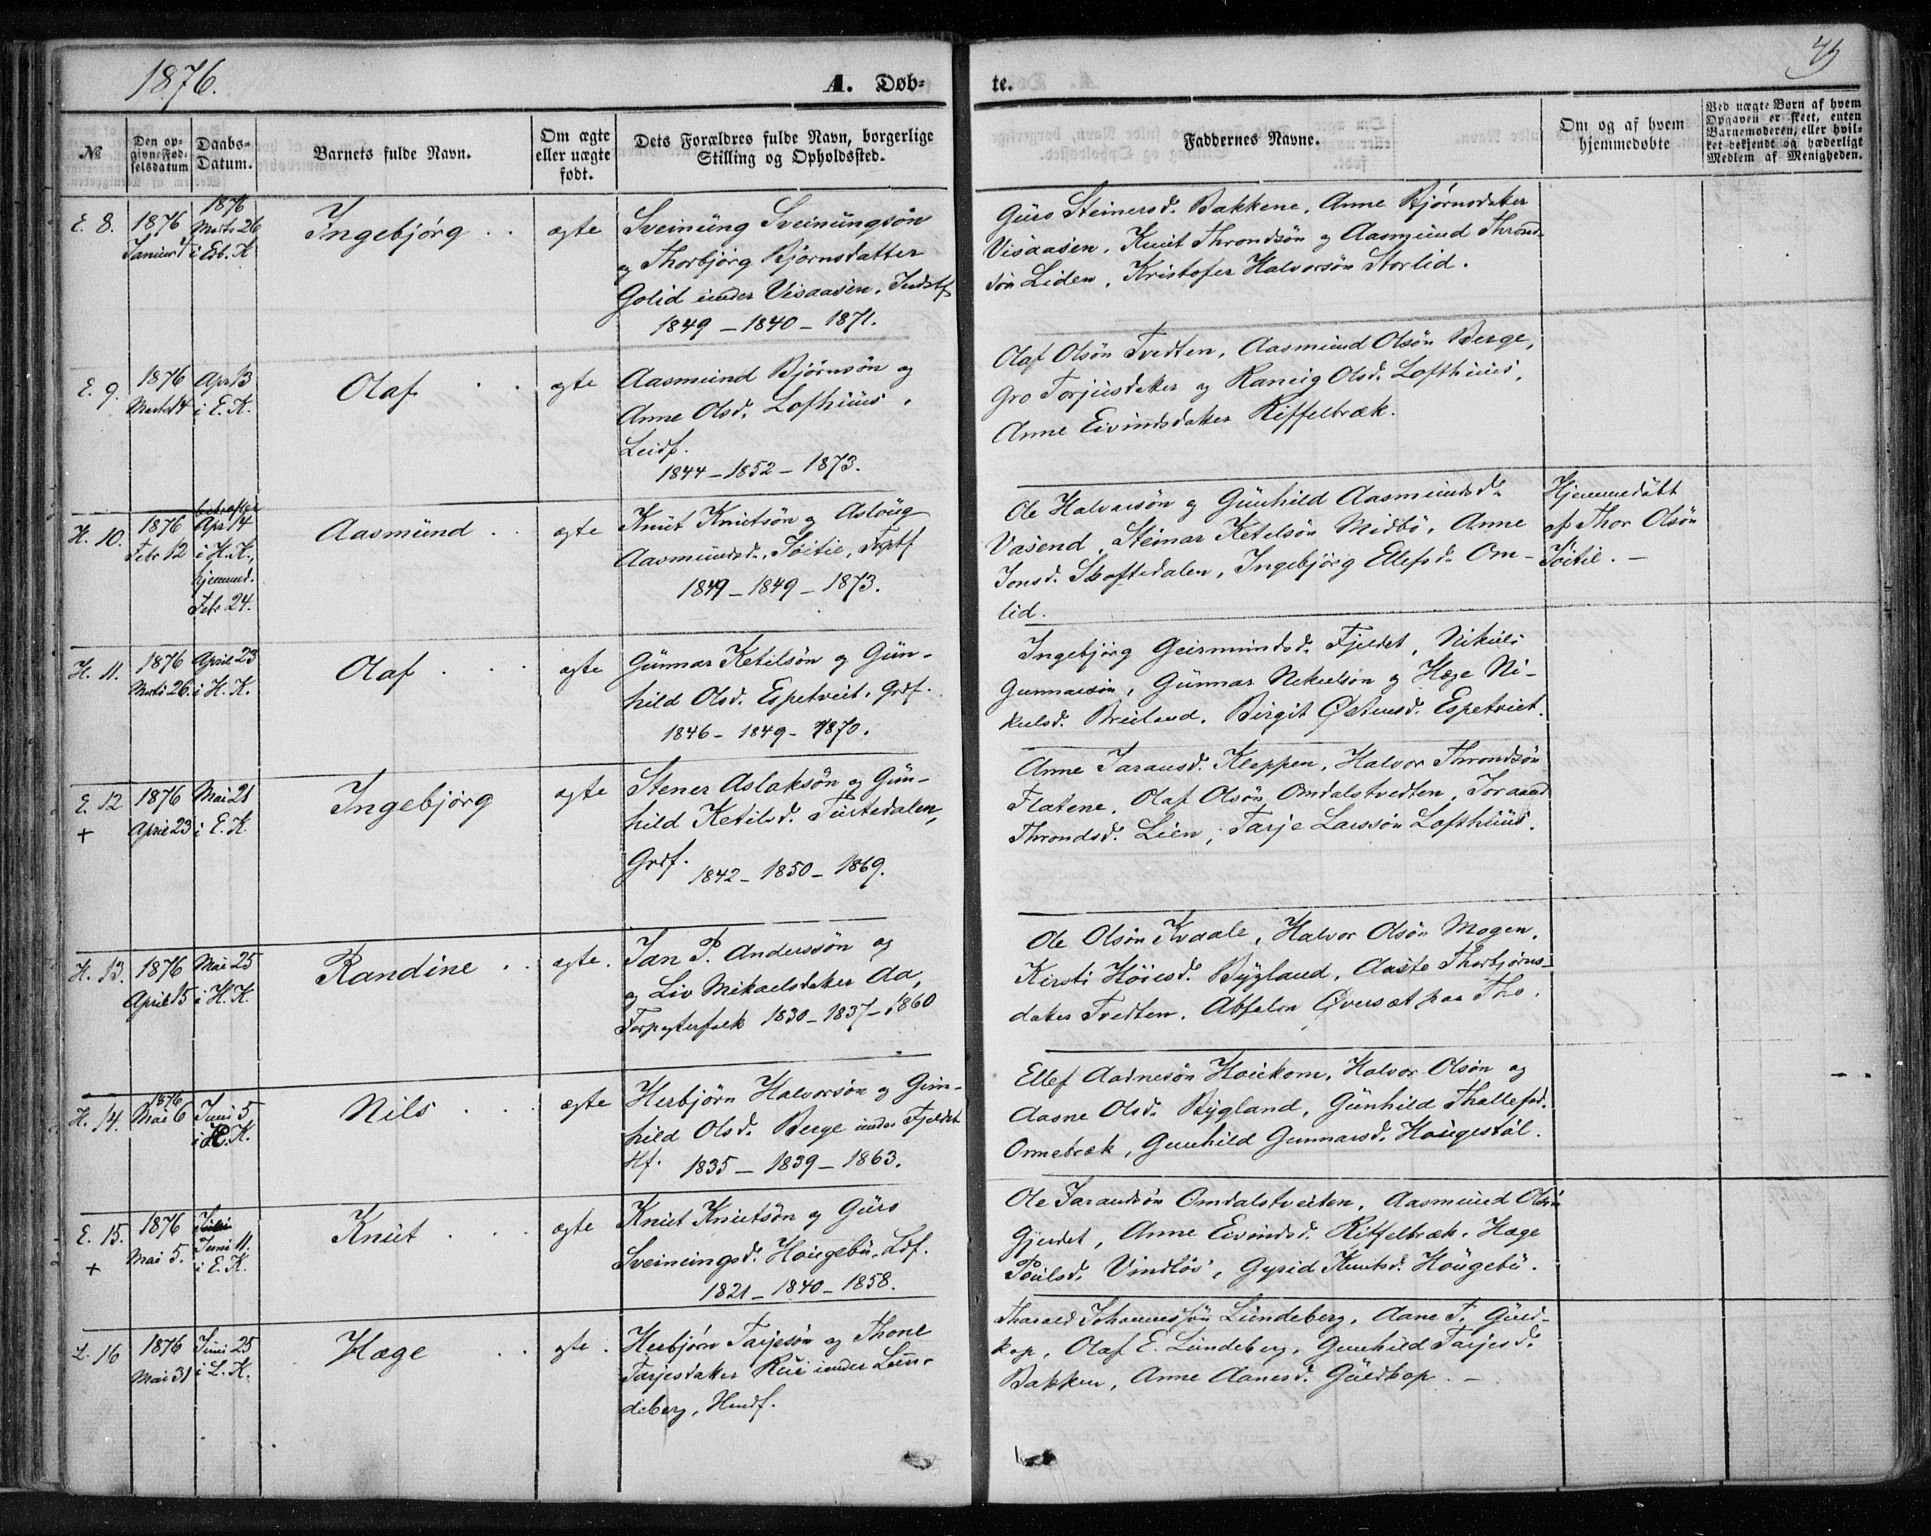 1876.
A. Døb-
te.
45
№
Den op-
givne Fød-
selsdatum
Daabs-
Datum.
Barnets fulde Navn.
Om ægte
eller uægte
født.
Dets Forældres fulde Navn, borgerlige
Stilling og Opholdssted.
Faddernes Navne.
Om og af hvem
hjemmedøbte
Ved uægte Born af hvem
Opgaven er skeet, enten
Barnemoderen, eller hvil-
ket bekjendt og hæderligt
Medlem af Menigheden.
E. 8.
1876
Januar
1876
Marts 26
i Esb. K.
Ingebjørg
ægte
Sveinung Sveinungsøn
og Thorbjørg Bjørnsdatter
Golid under Visaasen, Indstf
1849 – 1840 – 1871.
Gurs Steinersd. Bakkene, Anne Bjørnsdater
Visaasen, Knut Throndsøn og Aasmund Thrond-
søn Liden, Kristofer Halvorsøn Storlid.
E. 9.
1876
Marts 4
Apr. 13
i E. K.
Olaf
ægte
Aasmund Bjørnsøn og
Anne Olsd. Lofthuus,
Leidf.
1844 – 1852 – 1873.
Olaf Olsøn Tvedten, Aasmund Olsøn Berge,
Gro Torjusdater og Raneig Olsd. Lofthuus,
Anne Eivindsdater Riffelbræk.
H. 10.
1876
Febr 12
Apr 14
i H. K.,
hjemmed.
Febr 24.
Aasmund
ægte
Knut Knutsøn og Aslaug
Aasmundsd. Toitie,
1849 – 1849 – 1873.
Ole Halvarsøn og Gunhild Aasmundsd.
Vasend, Steinar Ketelsøn Midbø, Anne
Jonsd. Skoftedalen, Ingebjørg Ellefsd. Om-
lid.
Hjemmedøbt
af Thor Olsøn
Toitie. –
H. 11.
1876
Marts 26.
April 23
i H. K.
Olaf
ægte
Gunnar Ketilsøn og Gun-
hild Olsd. Espetveit. Grdf.
1846 – 1849 – 1870.
Ingebjørg Geirmundsd. Fjeldet, Nikuls
Gunnarsøn, Gunnar Nekulsøn og Hæge Ni-
kulsd. Breiland, Birgit Østensd. Espetveit.
E. 12
+
1876
April 23
Mai 21
i E. K.
Ingebjørg
ægte
Stener Aslaksøn og Gun-
hild Ketilsd. Tuftedalen,
Grdf. 1842 – 1850 – 1869.
Anne Taransd. Kleppen, Halvor Throndsøn
Flatene, Olaf Olsøn Omdalstvedten, Toraand
Throndsd. Lien, Tarje Larssøn Lofthuus.
H. 13.
1876
April 15
Mai 25
i H. K.
Randine
ægte.
Jan P. Anderssøn og
og Liv Mikaelsdater Aa,
Forpagterfolk 1830 – 1837 – 1860
Ole Olsøn Kvaale, Halvor Olsøn Mogen,
Kirsti Høiesd. Bygland, Aaste Thorbjørns-
dater Tvedten, Absalon Øversæt paa Tho.
H. 14.
1876
Mai 6
Juni 5
i H. K.
Nils
ægte
Herbjørn Halvorsøn og Gun-
hild Olsd. Berge under Fjeldet
Hf. 1835 – 1839 – 1863.
Ellef Aadnesøn Haukom, Halvor Olsøn og
Aasne Olsd. Bygland, Gunhild Thallefsd.
Ormebræk, Gunhild Gunnarsd. Haugestøl.
E. 15.
+
1876
Mai 5.
Juni 11.
i E. K.
Knut
ægte
Knut Knutsøn og Gurs
Sveinungsd. Haugebø, Ldf.
1821 – 1840 – 1858.
Ole Tarandsøn Omdalstveiten, Aasmund Olsøn
Gjerdet, Anne Eivindsd. Riffelbræk, Hæge
Poulsd. Vindløs, Gyrid Knutsd. Haugebø.
L. 16
1876
Mai 31
Juni 25
i L. K.
Hæge
ægte.
Herbjørn Tarjesøn og Thone
Tarjesdater Rui under Lun-
deberg, Husdf.
Tharald Johannessøn Lundeberg, Aane T. Guld-
kop, Olaf E. Lundeberg, Gunhild Tarjesd.
Bakken, Anne Aanesd. Guldkop. –